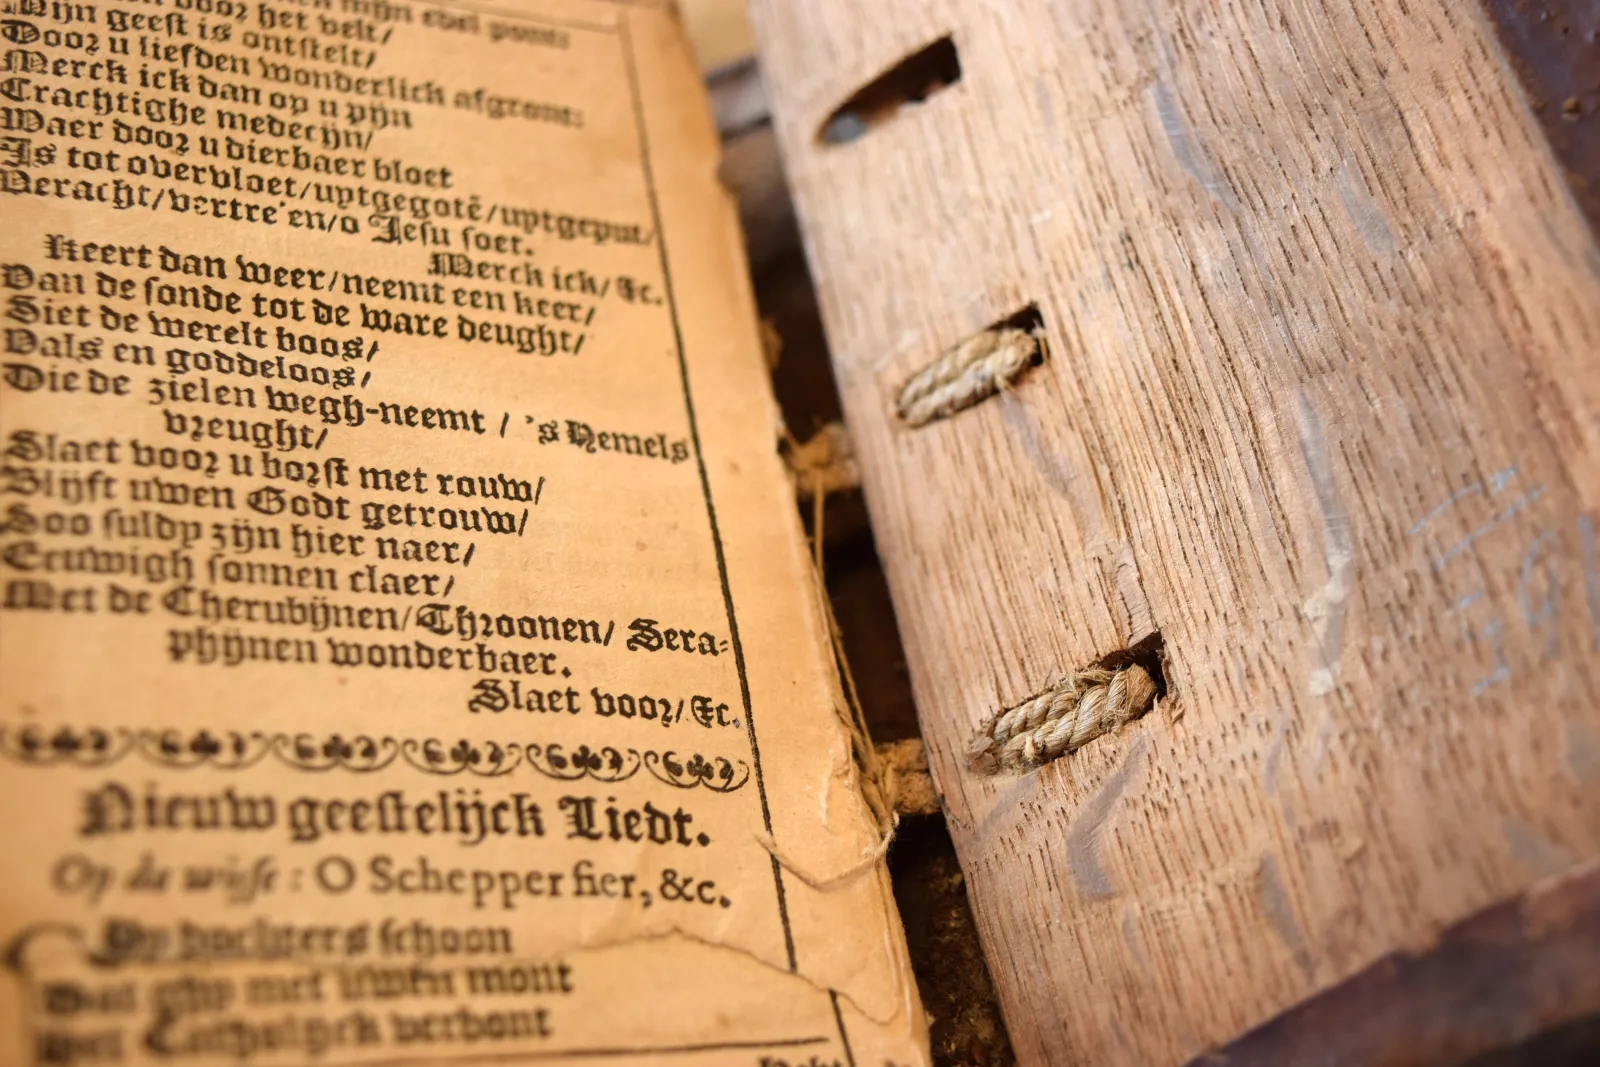 voor het velt/
Mijn geest is ontstelt/
Door u liefden wonderlick afgront:
Merck ick dan op u pijn
Crachtighe medecijn/
Waer door u dierbaer bloet
Is tot overvloet/uytgegotē/uytgeput/
Veracht/vertre en/o Jesu soet.
Merck ick/&c.
Keert dan weer/neemt een keer/
Van de sonde tot de ware deught/
Siet de werelt boos/
Vals en goddeloos/
Die de zielen wegh-neemt / 's Hemels
vreught/
Slaet voor u borst met rouw/
Blijft uwen Godt getrouw/
Soo suldy zijn hier naer/
Eeuwigh sonnen claer/
Met de Cherubijnen/Throonen/ Sera-
phijnen wonderbaer.
Slaet voor/&c.
Nieuw geestelijck Liedt.
Op de wijse: O Schepper fier, &c.
Ghy dochters schoon
Dat ghy met uwen mont
Het Catholijck verbont